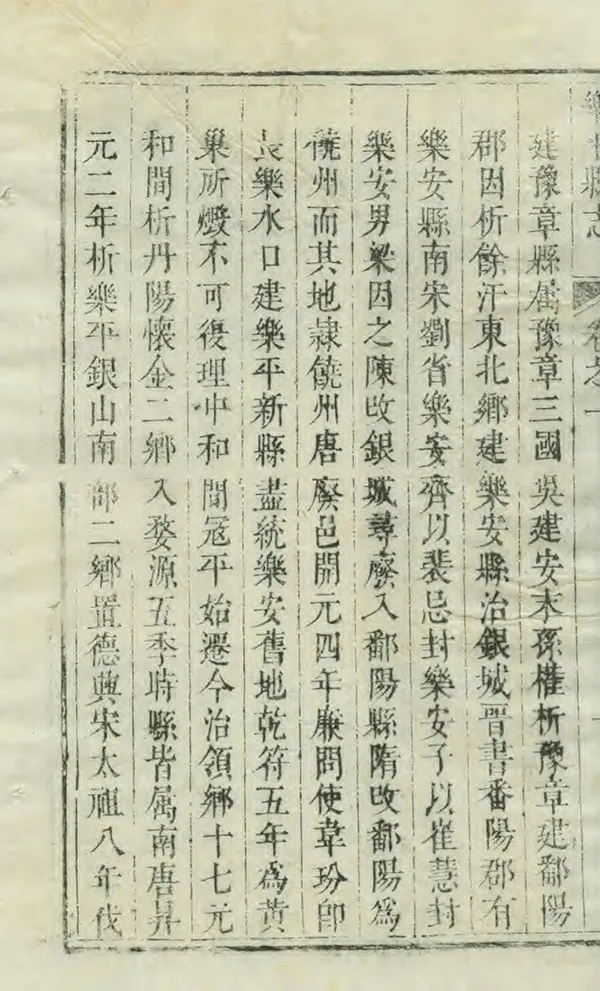 樂平縣志 卷之一
建豫章縣屬豫章三國吳建安末孫權析豫章建鄱陽
郡因析餘汗東北鄉建樂安縣治銀城晋書番陽郡有
樂安縣南宋劉省樂安齊以裴忌封樂安子以崔慧封
樂安男梁因之陳改銀城尋廢入鄱陽縣隋改鄱陽為
饒州而其地隷饒州唐廢邑開元四年廉問使韋玢卽
長樂水口建樂平新縣盡統樂安舊地乾符五年為黃
巢所燬不可復理中和間冦平始遷今治領鄉十七元
和間析丹陽懷金二鄉入婺源五季時縣皆属南唐昇
元二年析樂平銀山南部二鄉置德興宋太祖八年伐